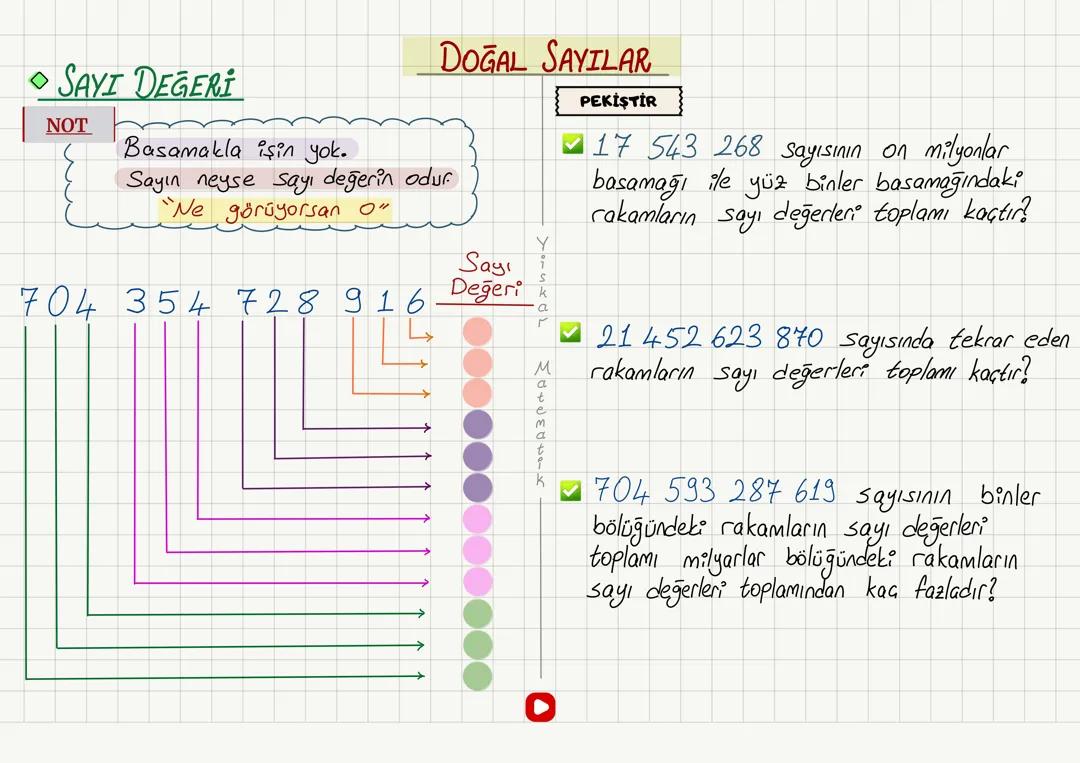 DOĞAL SAYILAR
SAYI DEĞERİ
NOT
Basamakla işin yok.
Sayın neyse sayı değerin odur.
"Ne görüyorsan O"
Sayı
Değeri
704 354 728 916
Yiskar Matematik
PEKİŞTİR
17 543 268 sayısının on milyonlar
basamağı ile yüz binler basamağındaki
rakamların sayı değerleri toplamı kaçtır?
21 452 623 870 sayısında tekrar eden
rakamların sayı değerleri toplamı kaçtır?
704 593 287 619 sayısının binler
bölüğündeki rakamların sayı değerleri
toplamı milyarlar bölüğündeki rakamların
sayı değerleri toplamından kaç fazladır?